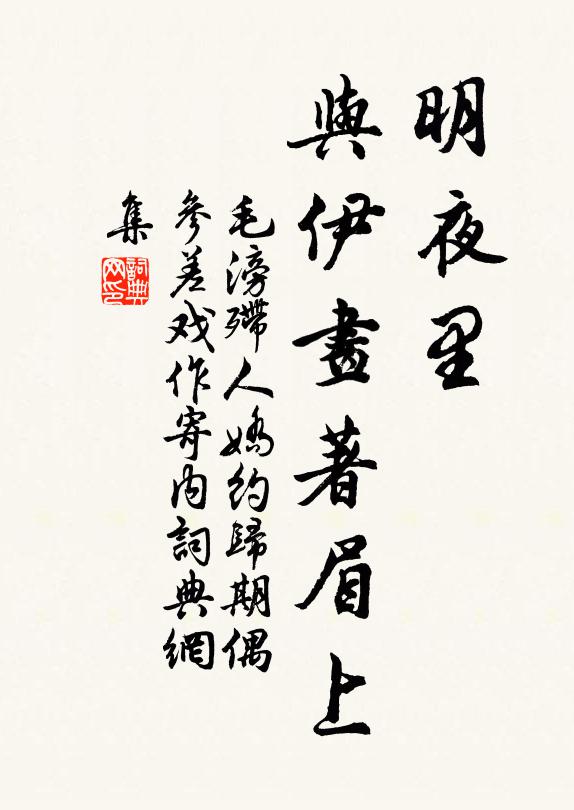 明夜里
與伊畫著眉上
毛滂殢人嬌約歸期偶
參差戏作寄内詞典網
集
詞典網印